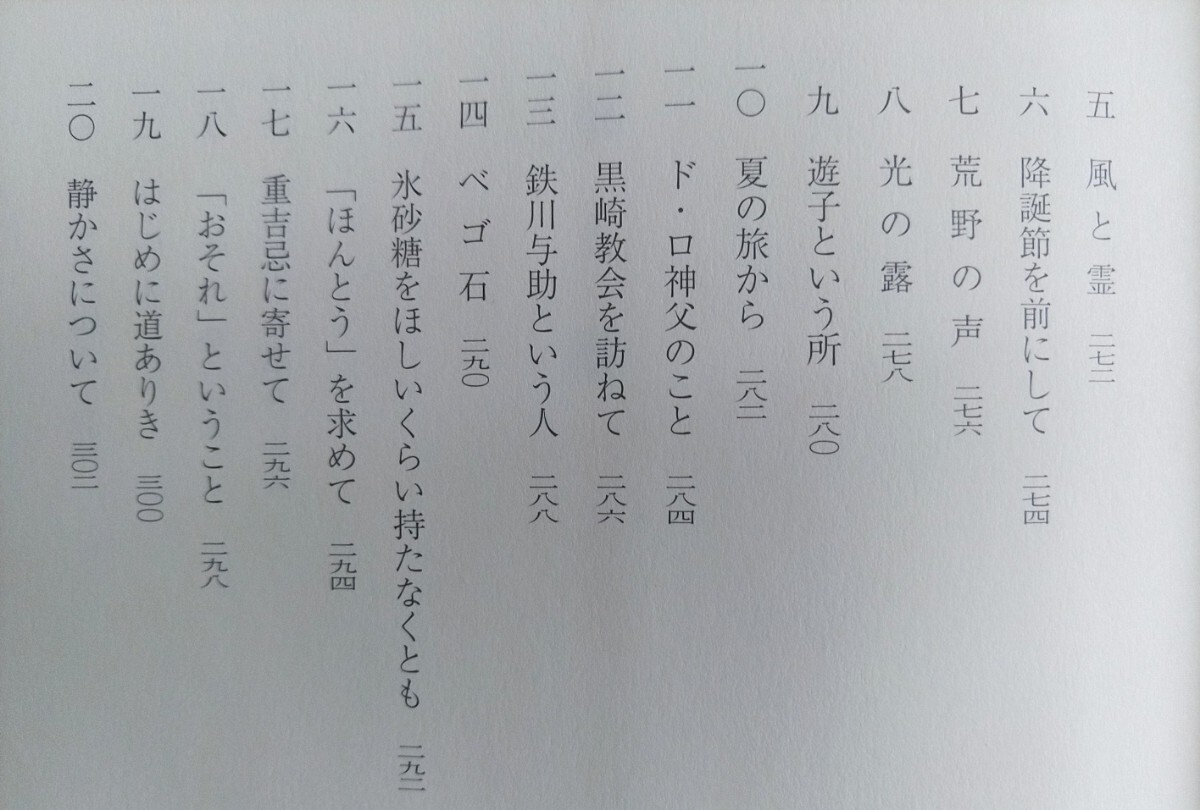 五 風と霊 二七二
六 降誕節を前にして 二七四
七 荒野の声 二七六
八 光の露 二七八
九 遊子という所 二八〇
一〇 夏の旅から 二八二
一一 ド・ロ神父のこと 二八四
一二 黒崎教会を訪ねて 二八六
一三 鉄川与助という人 二八八
一四 ベゴ石 二九〇
一五 氷砂糖をほしいくらい持たなくとも 二九二
一六 「ほんとう」を求めて 二九四
一七 重吉忌に寄せて 二九六
一八 「おそれ」ということ 二九八
一九 はじめに道ありき 三〇〇
二〇 静かさについて 三〇二